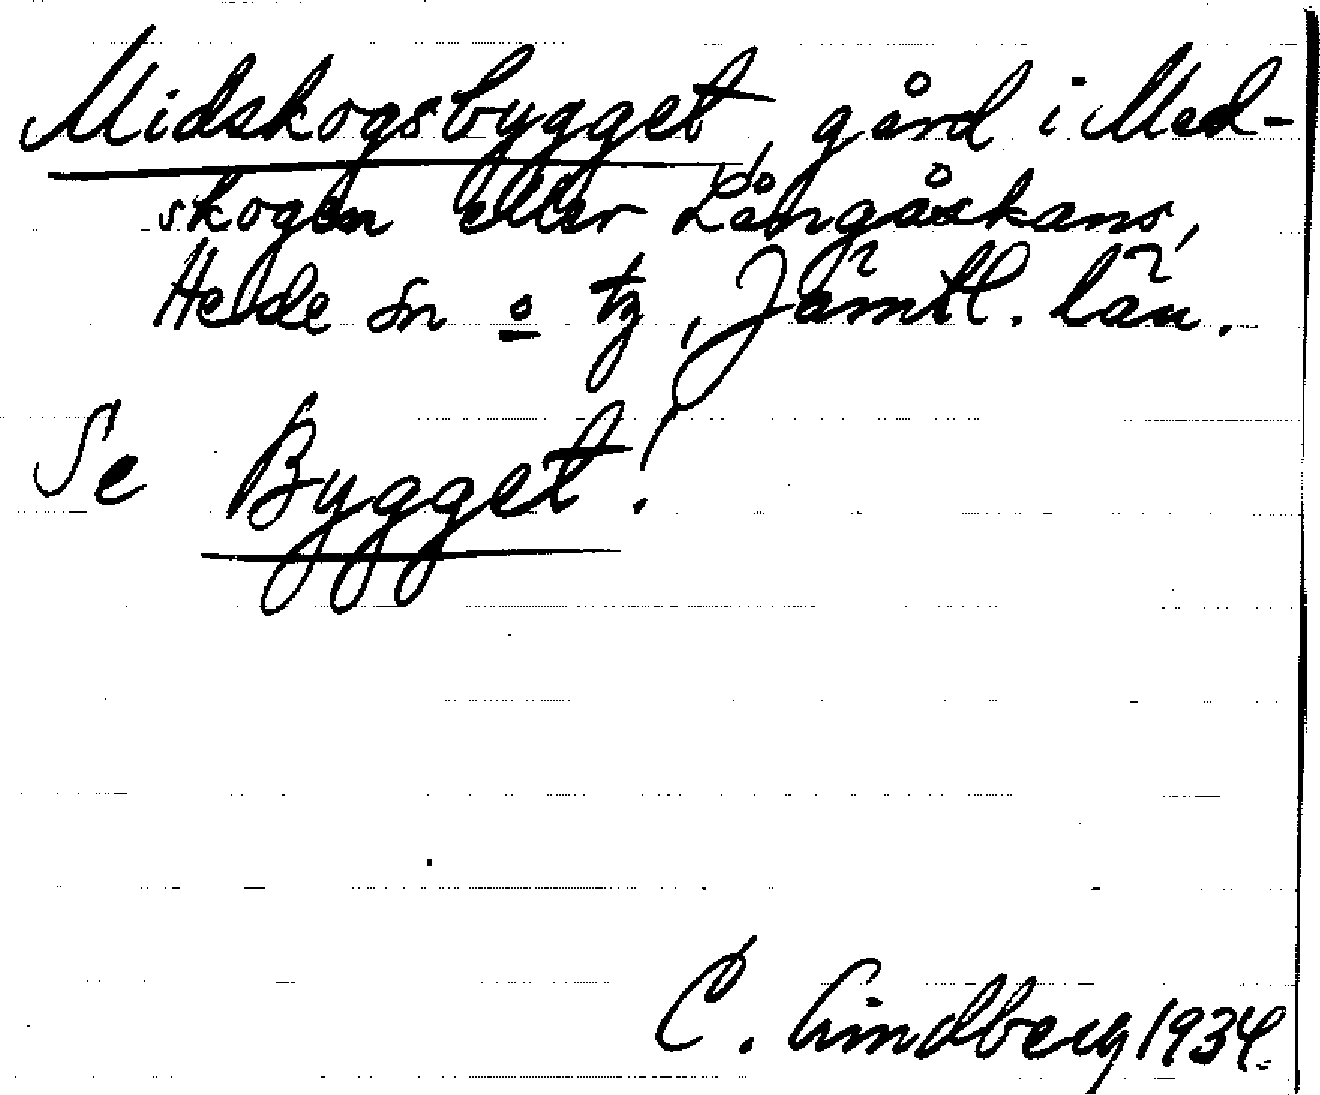 Midskogsbygget, gård i Med-
skogen eller Långåskans,
Hede sn o tg, Jämtl. län.
Se Bygget!
C. Lindberg 1934.